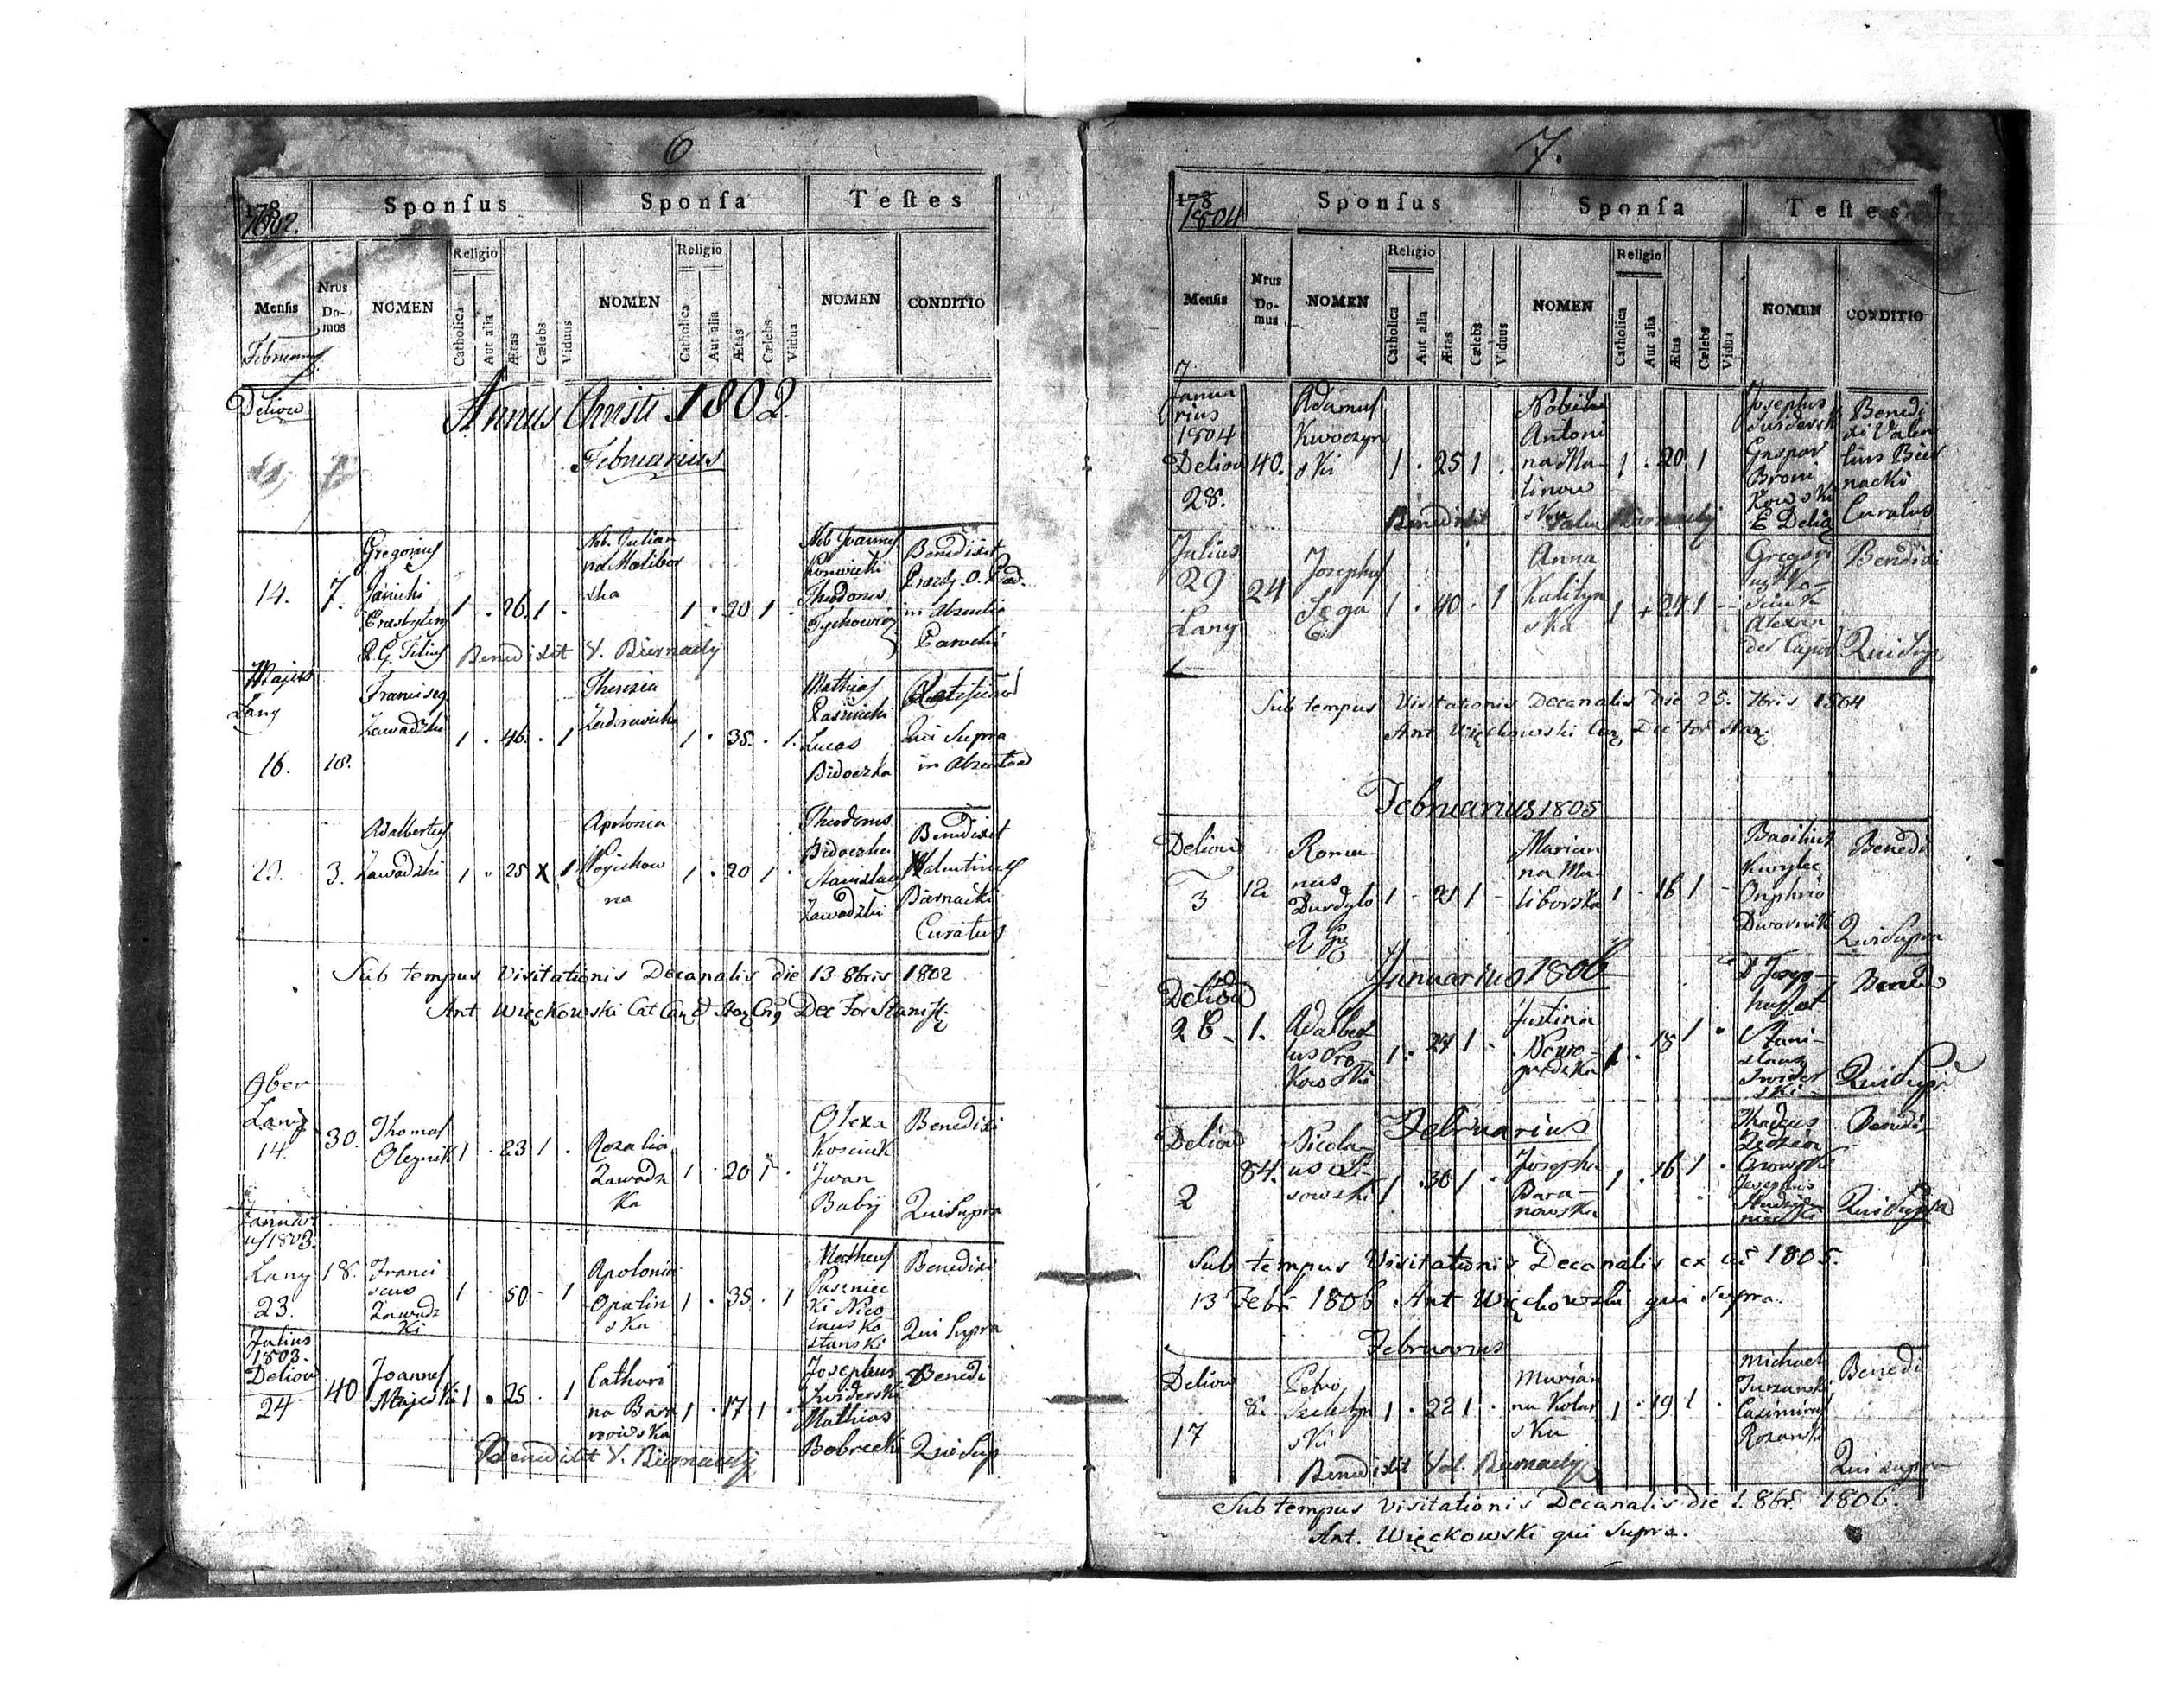 6
178
1802.
Sponsus Sponsa Testes
Mensis Nrus Domus NOMEN Religio Catholica Aut alia Ætas Cælebs Viduus NOMEN Religio Catholica Aut alia Ætas Cælebs Vidua NOMEN CONDITIO
Deliow
Annus Christi 1802.
Februarius
14. 7.
Gregorius
Janicki
R. G. Filius
1 . 26. 1 .
Nob. Julian
na Malibor
ska
1 . 20 1 .
Nob Joannes
Theodorus
Benedixit
in absentia
Parochi
Benedixit V. Biernacky
Majus
Lany
16. 18.
Francisq
Zawadzki
1 . 46. . 1
Theresia
1 . 35. . 1.
Mathias
Lucas
Bidoczka
Qui Supra
in absentia
23. 3.
Adalbertus
Zawadzki
1 . 25 X 1
Apolonia
Woyciechow
na
1 . 20 1 .
Theodorus
Bidoczka
Stanislaus
Zawadzki
Benedixit
Valentinus
Biernacki
Curatus
Sub tempus Visitationis Decanalis die 13 8bris 1802
Ant Więckowski Cat Can Dec For Stanisl
9ber
Lany
14. 30.
Thomas
Oleynik
1 . 23 1 .
Rozalia
Zawadz
Ka
1 . 20 1 .
Olexa
Kosciuk
Jwan
Baby
Benedixi
Qui Supra
Januari
us 1803.
Lany 18.
23.
Franci
scus
Zawadz
Ki
1 . 50 . 1
Apolonia
Opalin
ska
1 . 35 . 1
Matheus
Paszniec
ki Nico
laus Ko
stanski
Benedixi
Qui Supra
Julius
1803.
Deliow
24 40
Joannes
Majewski
1 . 25 . 1
Cathari
na Bara
nowska
1 . 17 1 .
Josephus
Swiderski
Mathias
Bobrecki
Benedi
Qui Sup
Benedixit V. Biernacky
7.
178
1804
Sponsus Sponsa Testes
Mensis Nrus Domus NOMEN Religio Catholica Aut alia Ætas Cælebs Viduus NOMEN Religio Catholica Aut alia Ætas Cælebs Vidua NOMEN CONDITIO
Janua
rius
1804
Deliow 40.
28.
Adamus
Kwoczyn
ski
1 . 25 1 .
Nobilis
Antoni
na Ma-
linow
ska
1 . 20 1
Josephus
Gaspar
Broni
kowski
E Delio
Benedi
xi Valen
tius Bier
nacki
Curatus
Benedixit Valen Biernacky
Julius
29 24
Lany
Josephus
Sega
1 . 40 . 1
Anna
Kalityn
ska
1 + 24 1 -
Gregori
us
Alexan
der
Benedixi
Qui Sup
Sub tempus Visitationis Decanalis die 25. 7bris 1804
Ant Więckowski Can Dec For Stan
Februarius 1805
Deliow
3 12
Roma
nus
Durdylo
1 - 21 1 -
Marian
na Ma-
liborska
1 . 16 1 -
Basilius
Kurylec
Onphrio
Dwornik
Benedi
Qui Supra
Januarius 1806
Deliow
26 - 1.
Adalber
tus Pro
kowski
1 . 27 1 .
Justina
Nowo-
grodzka
1 . 18 1 .
Stani-
slaus
Swider
ski
Bened
Qui Supr
Februarius
Deliow
84.
2
Nicola-
us Li-
sowski
1 . 30 1 .
Josepha
Bara-
nowska
1 . 16 1 .
Thadeus
Josephus
Benedi
Qui Supra
Sub tempus Visitationis Decanalis ex aō 1805.
13 Febr 1806 Ant Więckowski qui Supra.
Februarius
Deliow
8.
17
Petro
ski
1 . 22 1 .
Marian
na Kolar
ska
1 . 19 1 .
Michael
Turzanski
Casimirus
Rozanski
Benedi
Qui supra
Benedixit Val. Biernacky
Sub tempus Visitationis Decanalis die 1. 8br. 1806.
Ant. Więckowski qui Supra.